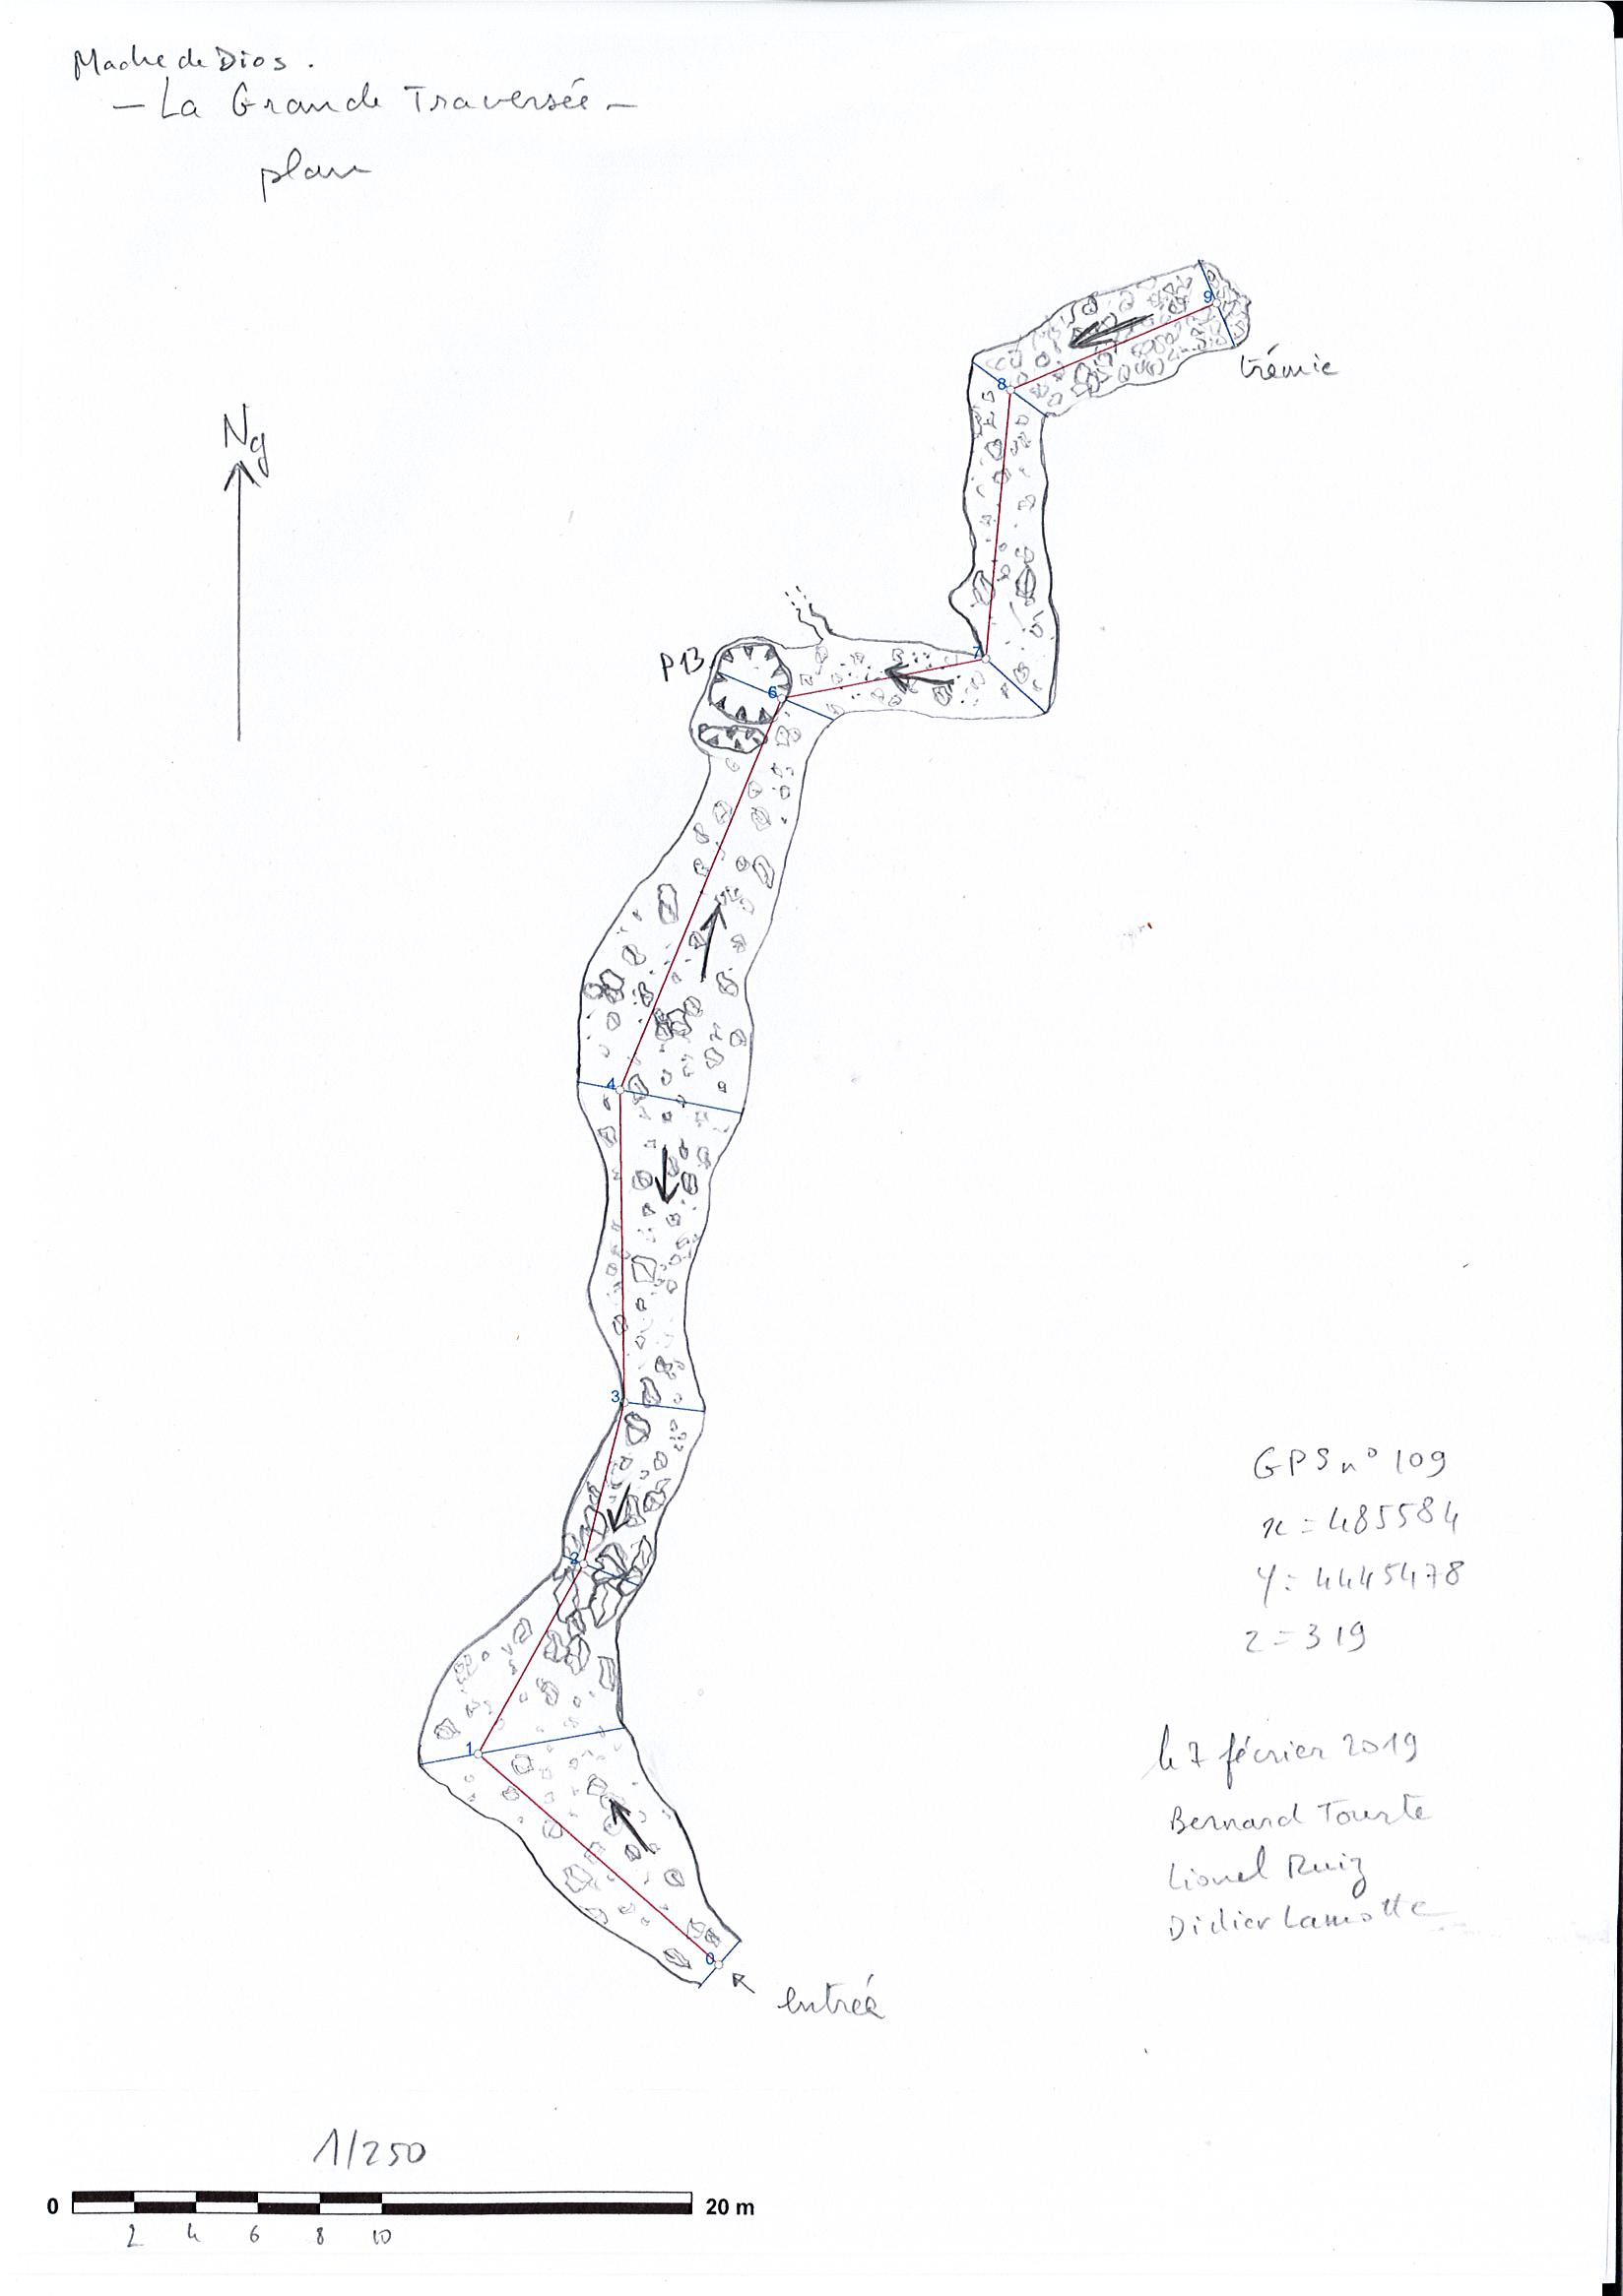 Madre de Dios.
- La Grande Traversée -
plan
Ng
9
trémie
8
7
P13
6
4
3
2
1
0
entrée
GPS n° 109
x = 485584
y = 4445478
z = 319
le 7 février 2019
Bernard Tourte
Lionel Ruiz
Didier Lamotte
1/250
0 20 m
2 4 6 8 10